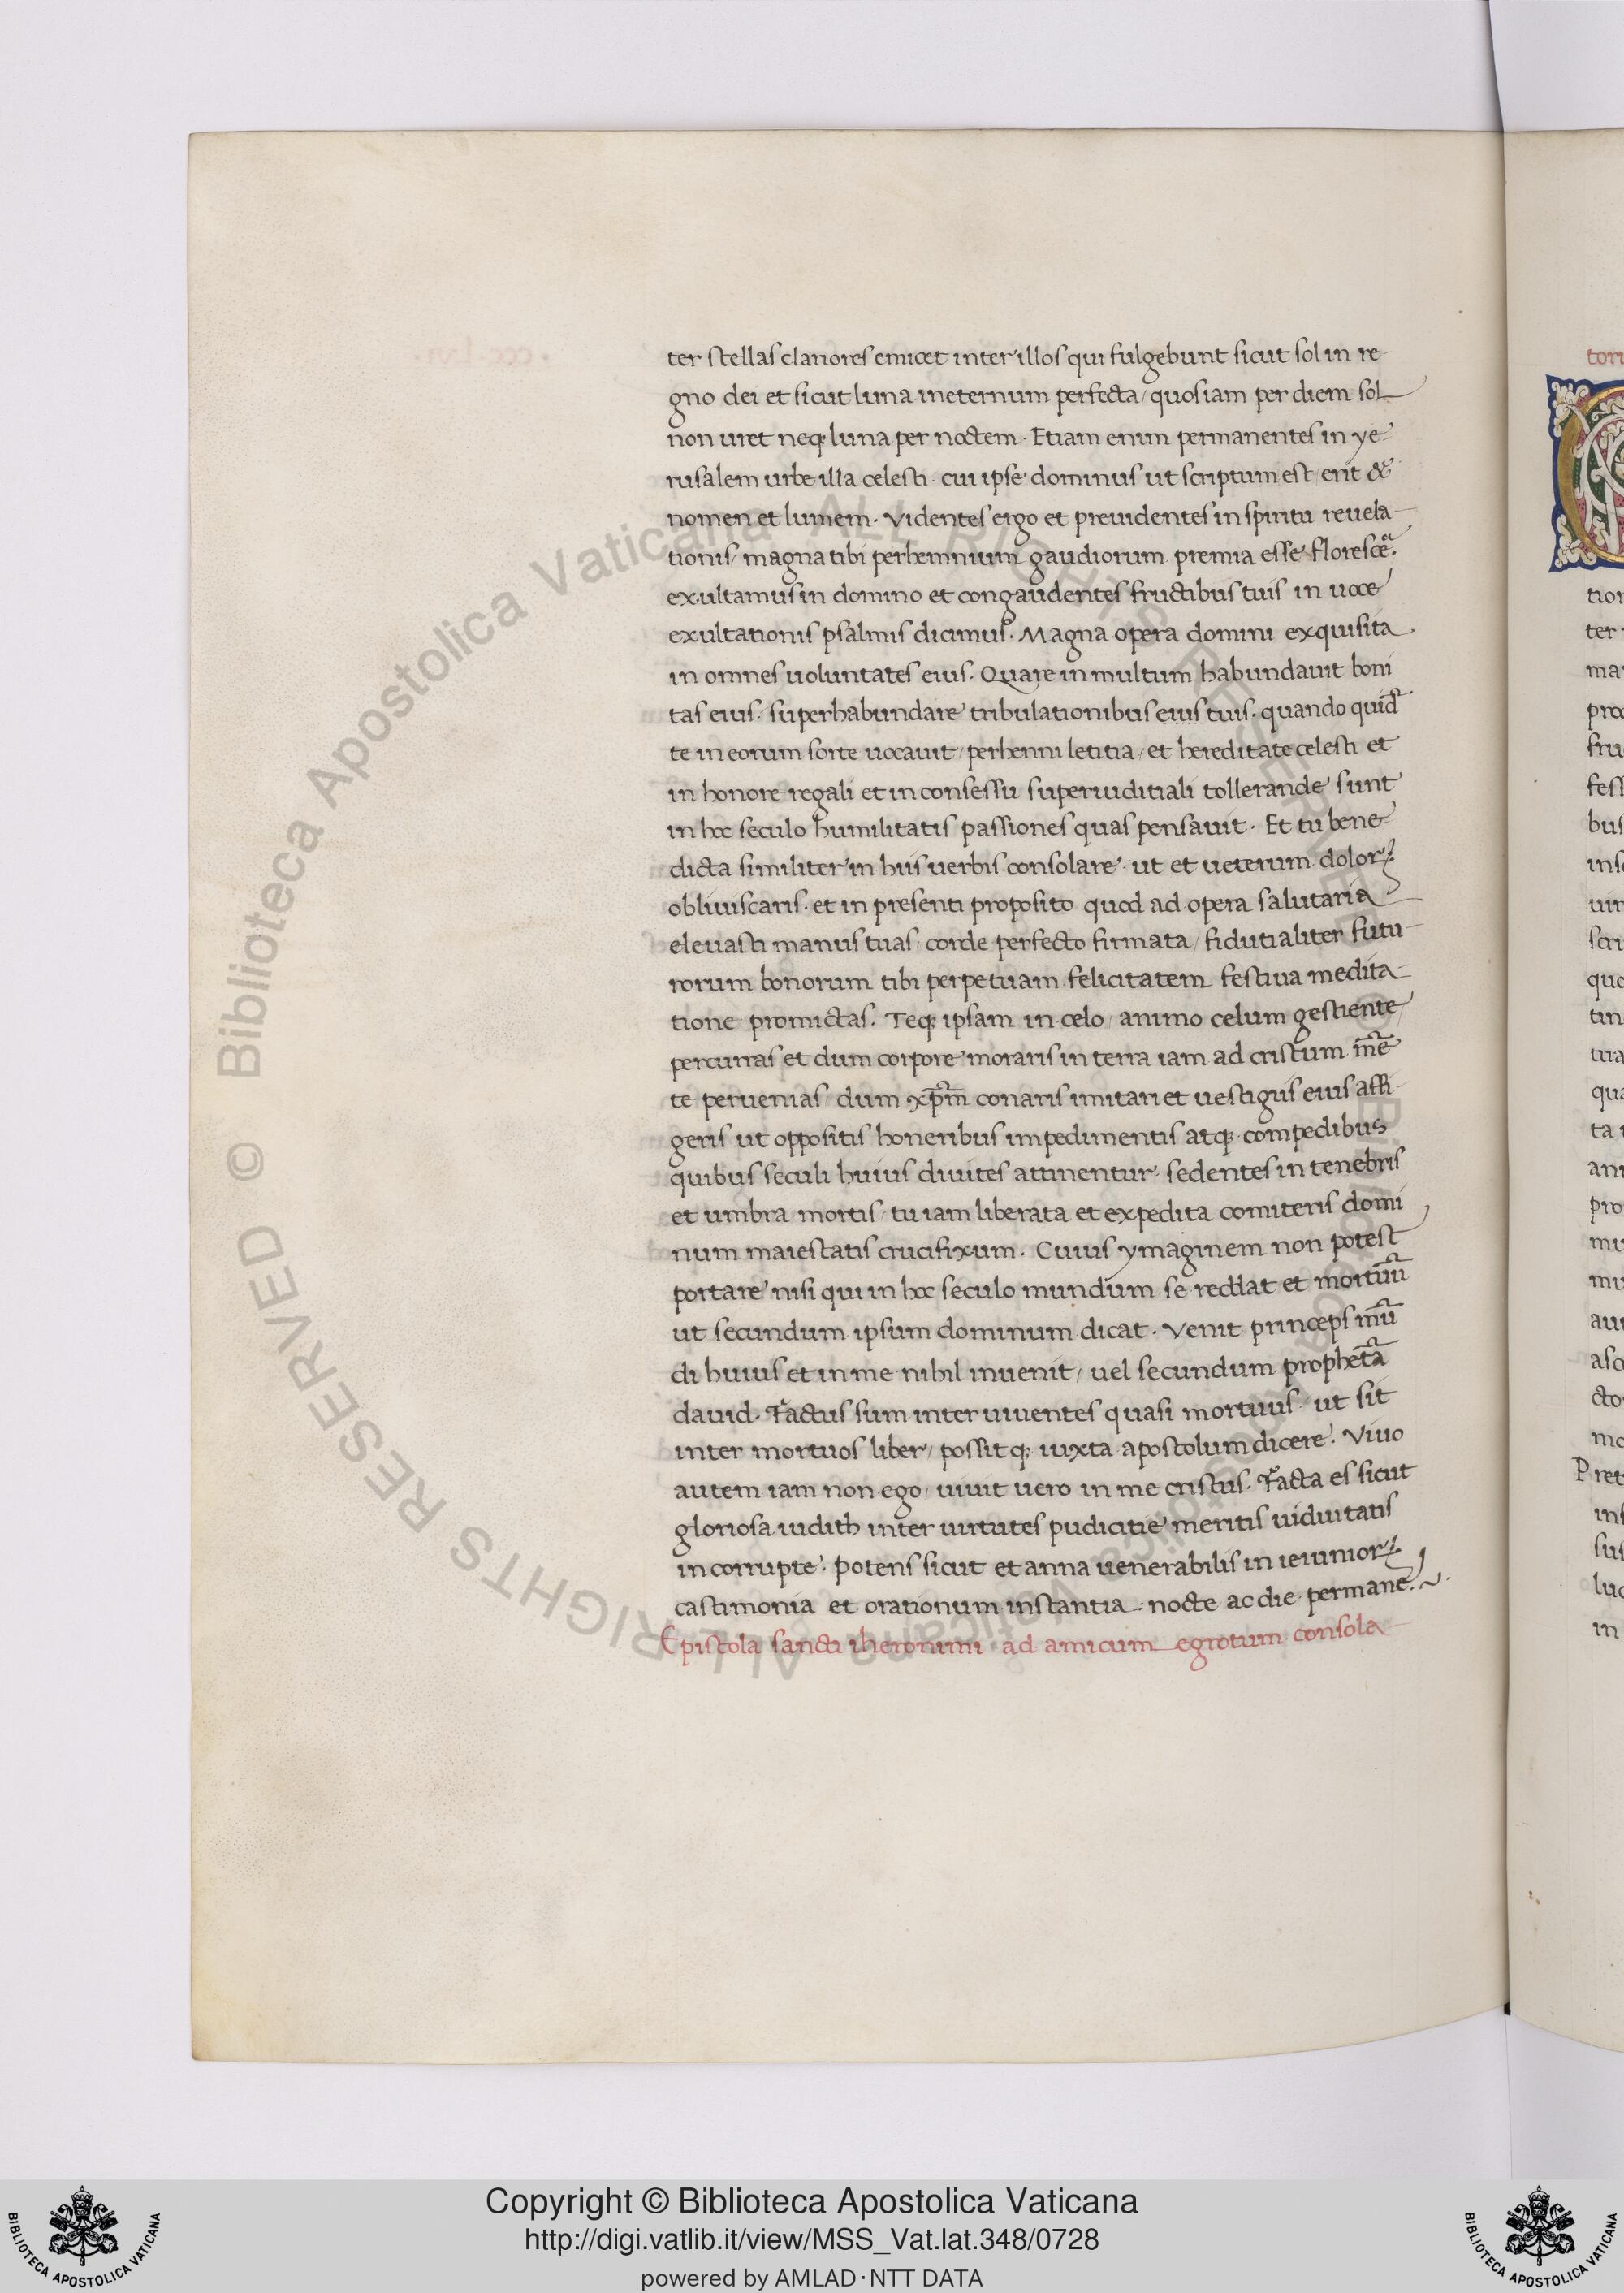 ter stellas clariores emicet inter illos qui fulgebunt sicut sol in re
gno dei et sicut luna in eternum perfecta / quos iam per diem sol
non uret neq; luna per noctem. Etiam enim permanentes in ye
rusalem urbe illa celesti. cui ipse dominus ut scriptum est erit &
nomen et lumem. Videntes ergo et preuidentes in spiritu reuela
tionis / magna tibi perhemnium gaudiorum premia esse florescẽa.
exultamus in domino et congaudentes fructibus tuis in uoce
exultationis psalmis dicimus. Magna opera domini exquisita
in omnes uoluntates eius. Quare in multum habundauit boni
tas eius. superhabundare tribulationibus eius tuis. quando quid
te in eorum sorte uocauit / perhenni letitia / et hereditate celesti et
in honore regali et in consessu superiuditiali tollerande sunt
in hoc seculo humilitatis passiones quas pensauit. Et tu bene
dicta similiter in huis uerbis consolare ut et ueterum dolorꝝ
obliuiscaris. et in presenti proposito quod ad opera salutaria
eleuasti manus tuas / corde perfecto firmata / fidutialiter futu
rorum bonorum tibi perpetuam felicitatem festiua medita
tione promictas. Teq; ipsam in celo / animo celum gestiente
percurras et dum corpore moraris in terra iam ad cristum mẽ
te peruenias / dum xp̃m conaris imitari et uestigiis eius affi
geris ut oppositis honeribus impedimentis atq; compedibus
quibus seculi huius diuites attinentur. sedentes in tenebris
et umbra mortis / tu iam liberata et expedita comiteris domi
num maiestatis crucifixum. Cuius ymaginem non potest
portare nisi qui in hoc seculo mundum se reddat et mortuũ
ut secundum ipsum dominum dicat. Venit princeps mũ
di huius et in me nihil inuenit / uel secundum prophetã
dauid. Factus sum inter uiuentes quasi mortuus. ut sit
inter mortuos liber / possitq; iuxta apostolum dicere. Viuo
autem iam non ego / uiuit uero in me cristus. Facta es sicut
gloriosa iudith inter uirtutes pudicitie meritis uiduitatis
incorrupte. potens sicut et anna uenerabilis in ieiuniorꝝ
castimonia et orationum instantia. nocte ac die permane.
Epistola sancti iheronimi ad amicum egrotum consola
Copyright © Biblioteca Apostolica Vaticana
http://digi.vatlib.it/view/MSS_Vat.lat.348/0728
powered by AMLAD·NTT DATA
BIBLIOTECA APOSTOLICA VATICANA
BIBLIOTECA APOSTOLICA VATICANA
© Biblioteca Apostolica Vaticana ALL RIGHTS RESERVED
© Biblioteca Apostolica Vaticana ALL RIGHTS RESERVED